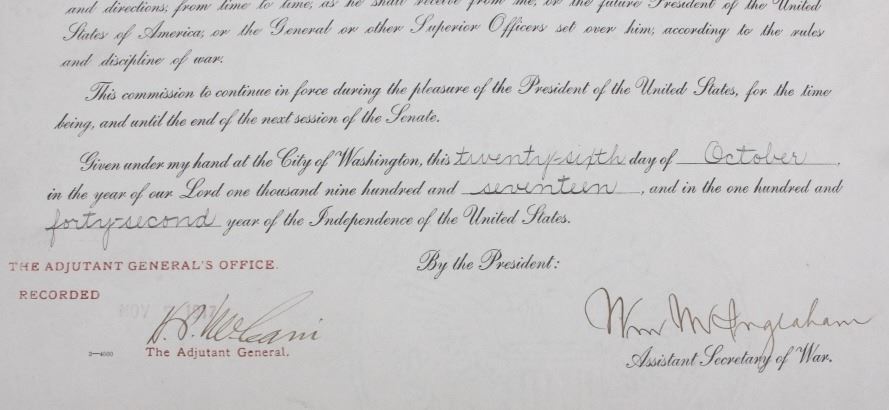 and directions, from time to time, as he shall receive from me, or the future President of the United
States of America, or the General or other Superior Officers set over him, according to the rules
and discipline of war.
This commission to continue in force during the pleasure of the President of the United States, for the time
being, and until the end of the next session of the Senate.
Given under my hand at the City of Washington, this twenty-sixth day of October,
in the year of our Lord one thousand nine hundred and seventeen, and in the one hundred and
forty-second year of the Independence of the United States.
By the President:
THE ADJUTANT GENERAL'S OFFICE.
RECORDED
NOV 1917
H. P. McCain
3—4600 The Adjutant General.
Wm M Ingraham
Assistant Secretary of War.